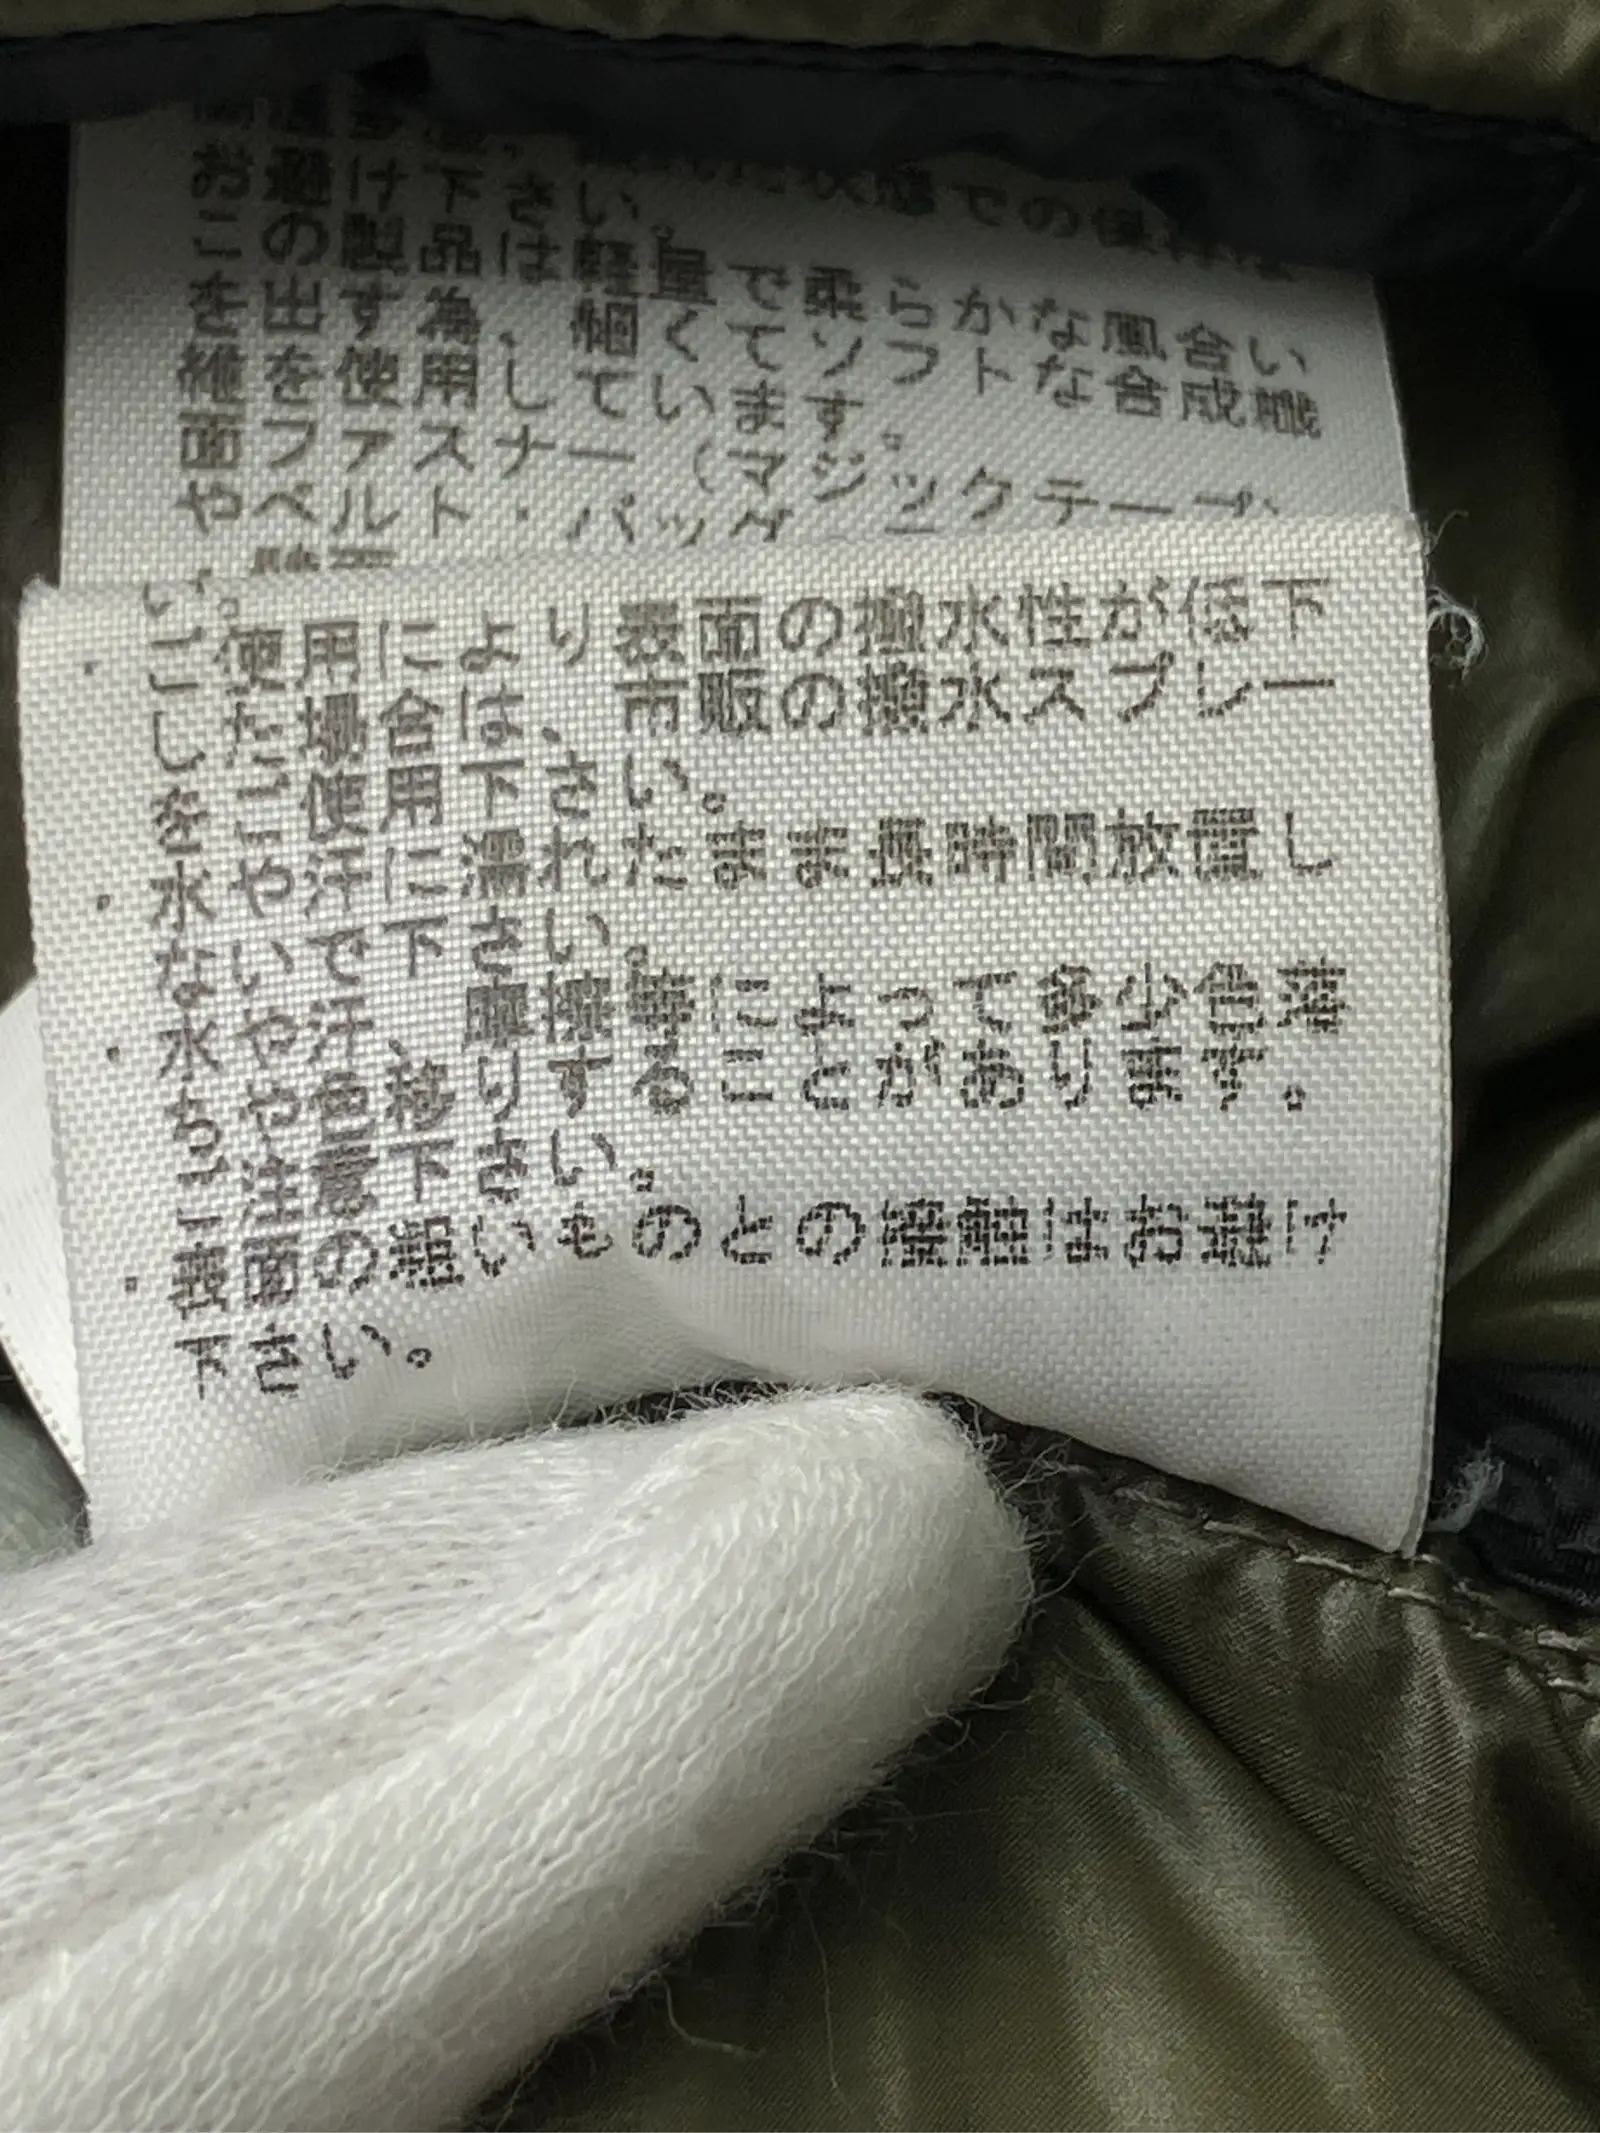 お避け下さい。
この製品は軽量で柔らかな風合い
を出す為、細くてソフトな合成繊
維を使用しています。
面ファスナー（マジックテープ
やベルト・バッグ
い。
・ご使用により表面の撥水性が低下
した場合は、市販の撥水スプレー
をご使用下さい。
・水や汗に濡れたまま長時間放置し
ないで下さい。
・水や汗、摩擦等によって多少色落
ちや色移りすることがあります。
ご注意下さい。
・表面の粗いものとの接触はお避け
下さい。